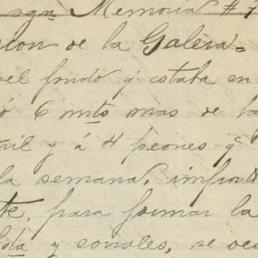 sgn Memoria # 7
cion de la Galera=
el fondo q' estaba en
ó 6 mts mas de la
ril y á 4 peones q^e
la semana, import
para formar la
y sociales, se oc